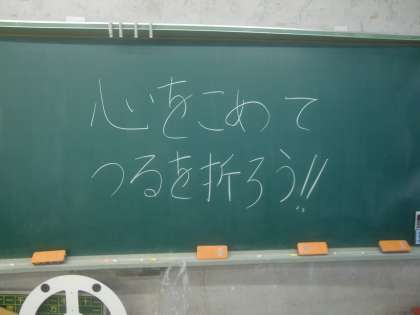 心をこめて
つるを折ろう!!